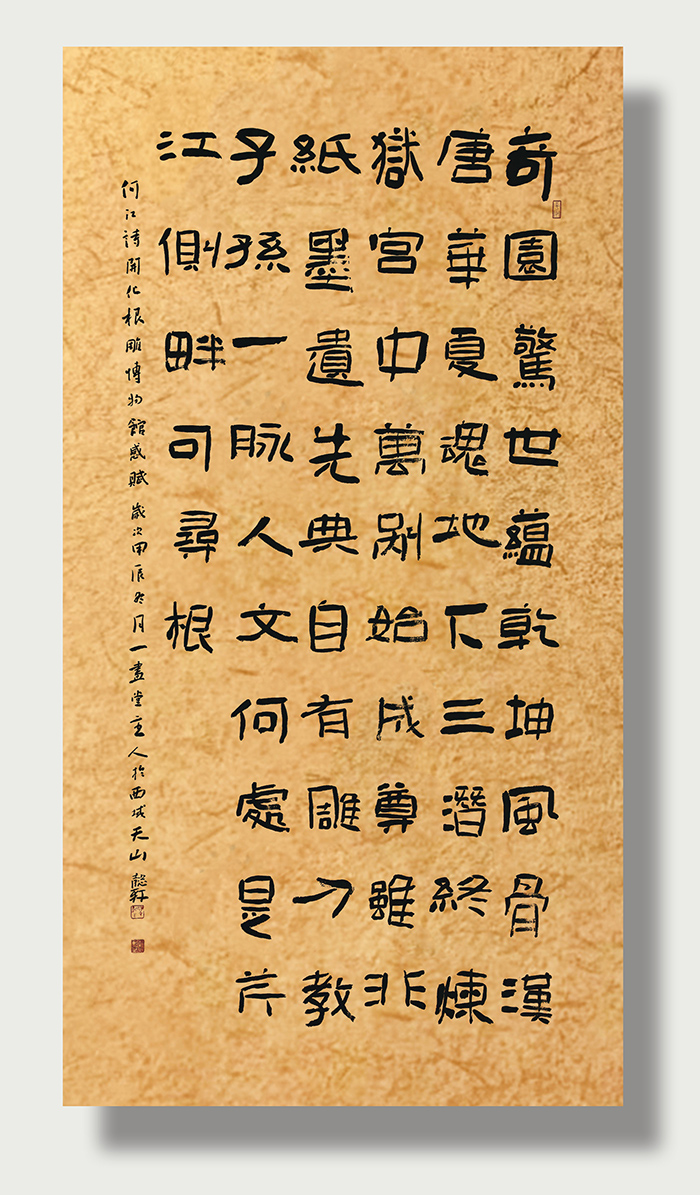 奇園驚世蘊乾坤風骨漢
唐華夏魂地下三潛終煉
獄宮中萬剮始成尊雖非
紙墨遺先典自有雕刀教
子孫一脉人文何處是芹
江側畔可尋根
何江詩開化根雕博物館感賦歲次甲辰冬月一畫堂主人於西域天山